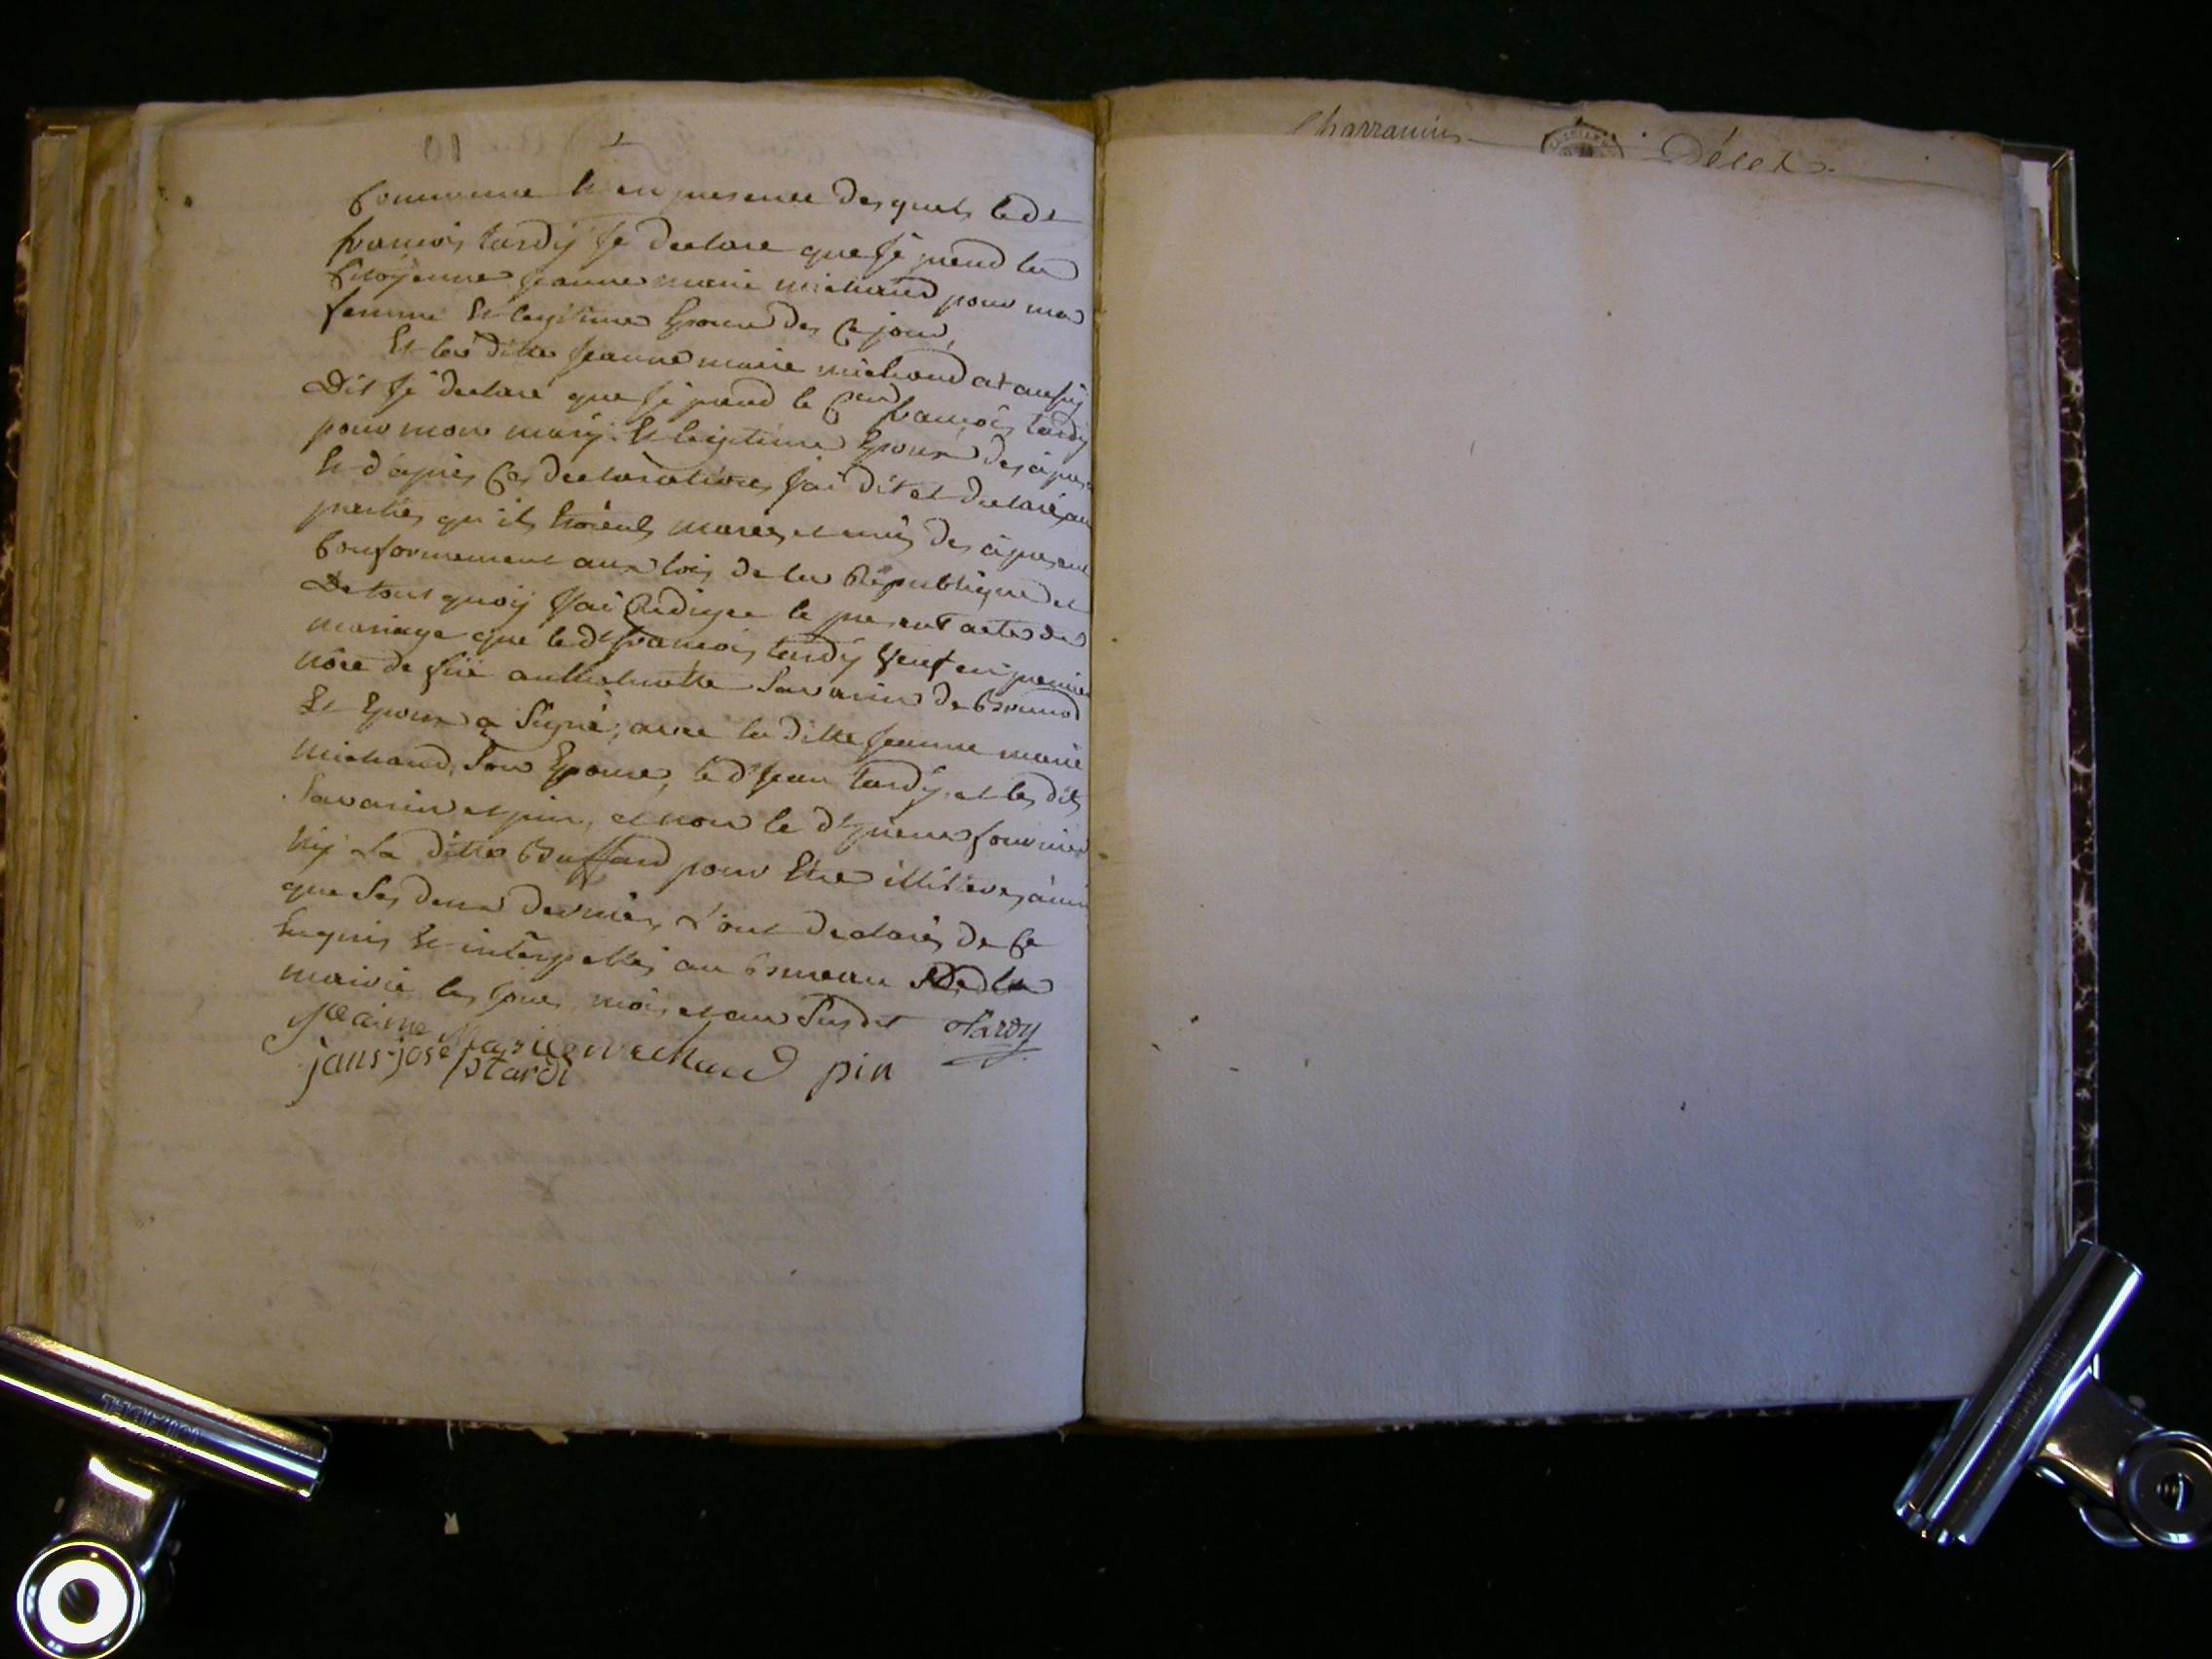 Commune Et en presence desquels led.t
francois tardÿ Je declare que Je prend la
Citoÿenne Jeanne marie michaud pour ma
femme Et legitime Epouse des Ce jour,
Et la ditte Jeanne marie michaud at aussÿ
Dit Je declare que Je prend le C.en francois tardÿ
pour mon marÿ Et legitime Epoux des à pres
Et d'apres Ces declarations J'ai dit et declaré aux
parties qu'ils Etoient mariés et unis des à present
Conformement aux lois de la Republique et
De tout quoÿ J'ai Redigée le present acte de
mariage que le d.t francois tardÿ Veuf en premier
nôce de fue anthelmette Savarin de
Et Epoux a Signé, avec la ditte Jeanne marie
michaud, Son Epouse, le d.t Jean tardÿ, et les dits
Savarin et pin, et non le d.t fournier
nÿ La ditte Buffard pour Etre illiteres ainsi
que Ses deux derniers L'ont declarés de Ce
Enquis Et interpellés au Bureau De la
mairie les Jour, mois et an Susdit Tardy
Jeaime Mariie michaud pin
jans-jose tardi
Charramin Décès